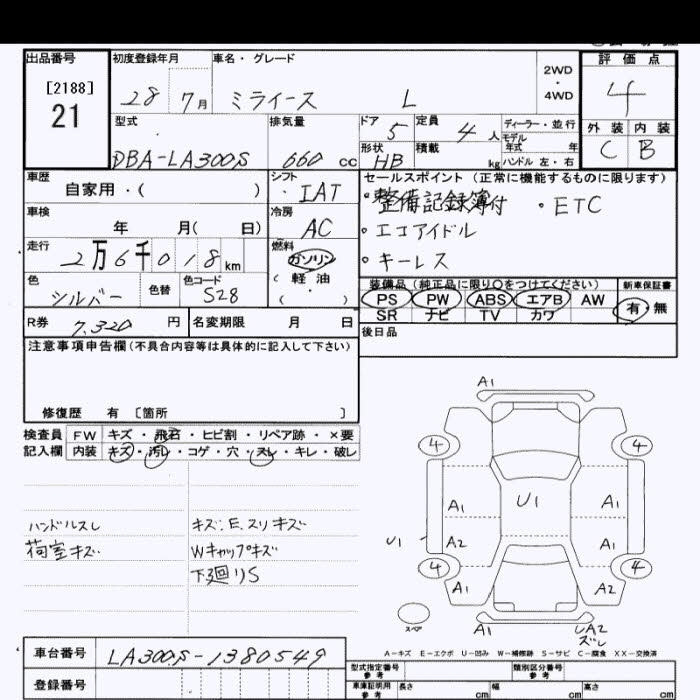 出品番号 初度登録年月 車名・グレード 評価点
[2188] 21 28 7月 ミライース L 2WD・4WD 4
型式 排気量 ドア 5 定員 4人 ディーラー・並行 外装 内装
モデル年式 年
DBA-LA300S 660cc 形状 HB 積載 kg ハンドル左・右 C B
車歴 シフト セールスポイント(正常に機能するものに限ります)
自家用・( ) ・IAT ・整備記録簿付 ・ETC
車検 冷房 ・エコアイドル
年 月( 日) AC ・キーレス
走行 燃料
2万6千018km ガソリン
(軽油)
色 色替 色コード 装備品(純正品に限り○をつけてください) 新車保証書
シルバー S28 PS PW ABS エアB AW 有・無
SR ナビ TV カワ
R券 7,320円 名変期限 月 日 後日品
注意事項申告欄(不具合内容等は具体的に記入して下さい)
修復歴 有 [箇所 ]
検査員 FW キズ・飛石・ヒビ割・リペア跡・×要
記入欄 内装 キズ・汚レ・コゲ・穴・スレ・キレ・破レ
ハンドルスレ キズ:E.スリキズ
荷室キズ Wキャップキズ
下廻りS
A1
4 4
A1 U1 A1
U1 A2 A1
4 4
A1 A2
スペア A1 LA2
ズレ
A-キズ E-エクボ U-凹み W-補修跡 S-サビ C-腐食 XX-交換済
車台番号 LA300S-1380549
登録番号
型式指定番号 参考 類別区分番号 参考
車庫証明用 参考 長さ cm 幅 cm 高さ cm